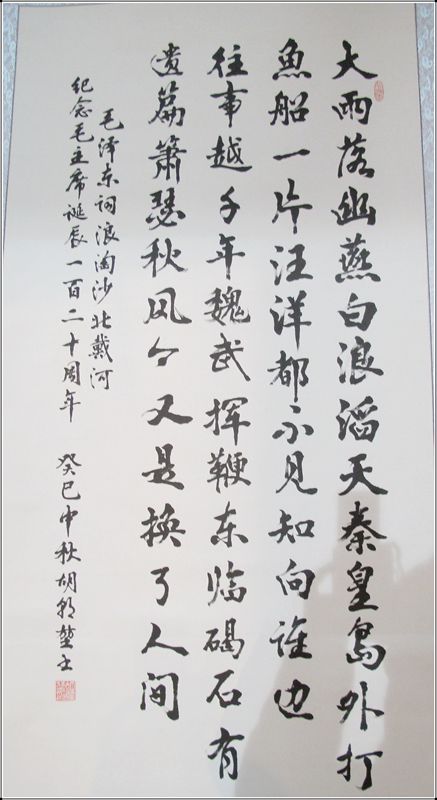 大雨落幽燕白浪滔天秦皇島外打
魚船一片汪洋都不見知向谁边
往事越千年魏武挥鞭东临碣石有
遗篇萧瑟秋风今又是换了人间
毛泽东词浪淘沙北戴河
纪念毛主席诞辰一百二十周年 癸巳中秋胡